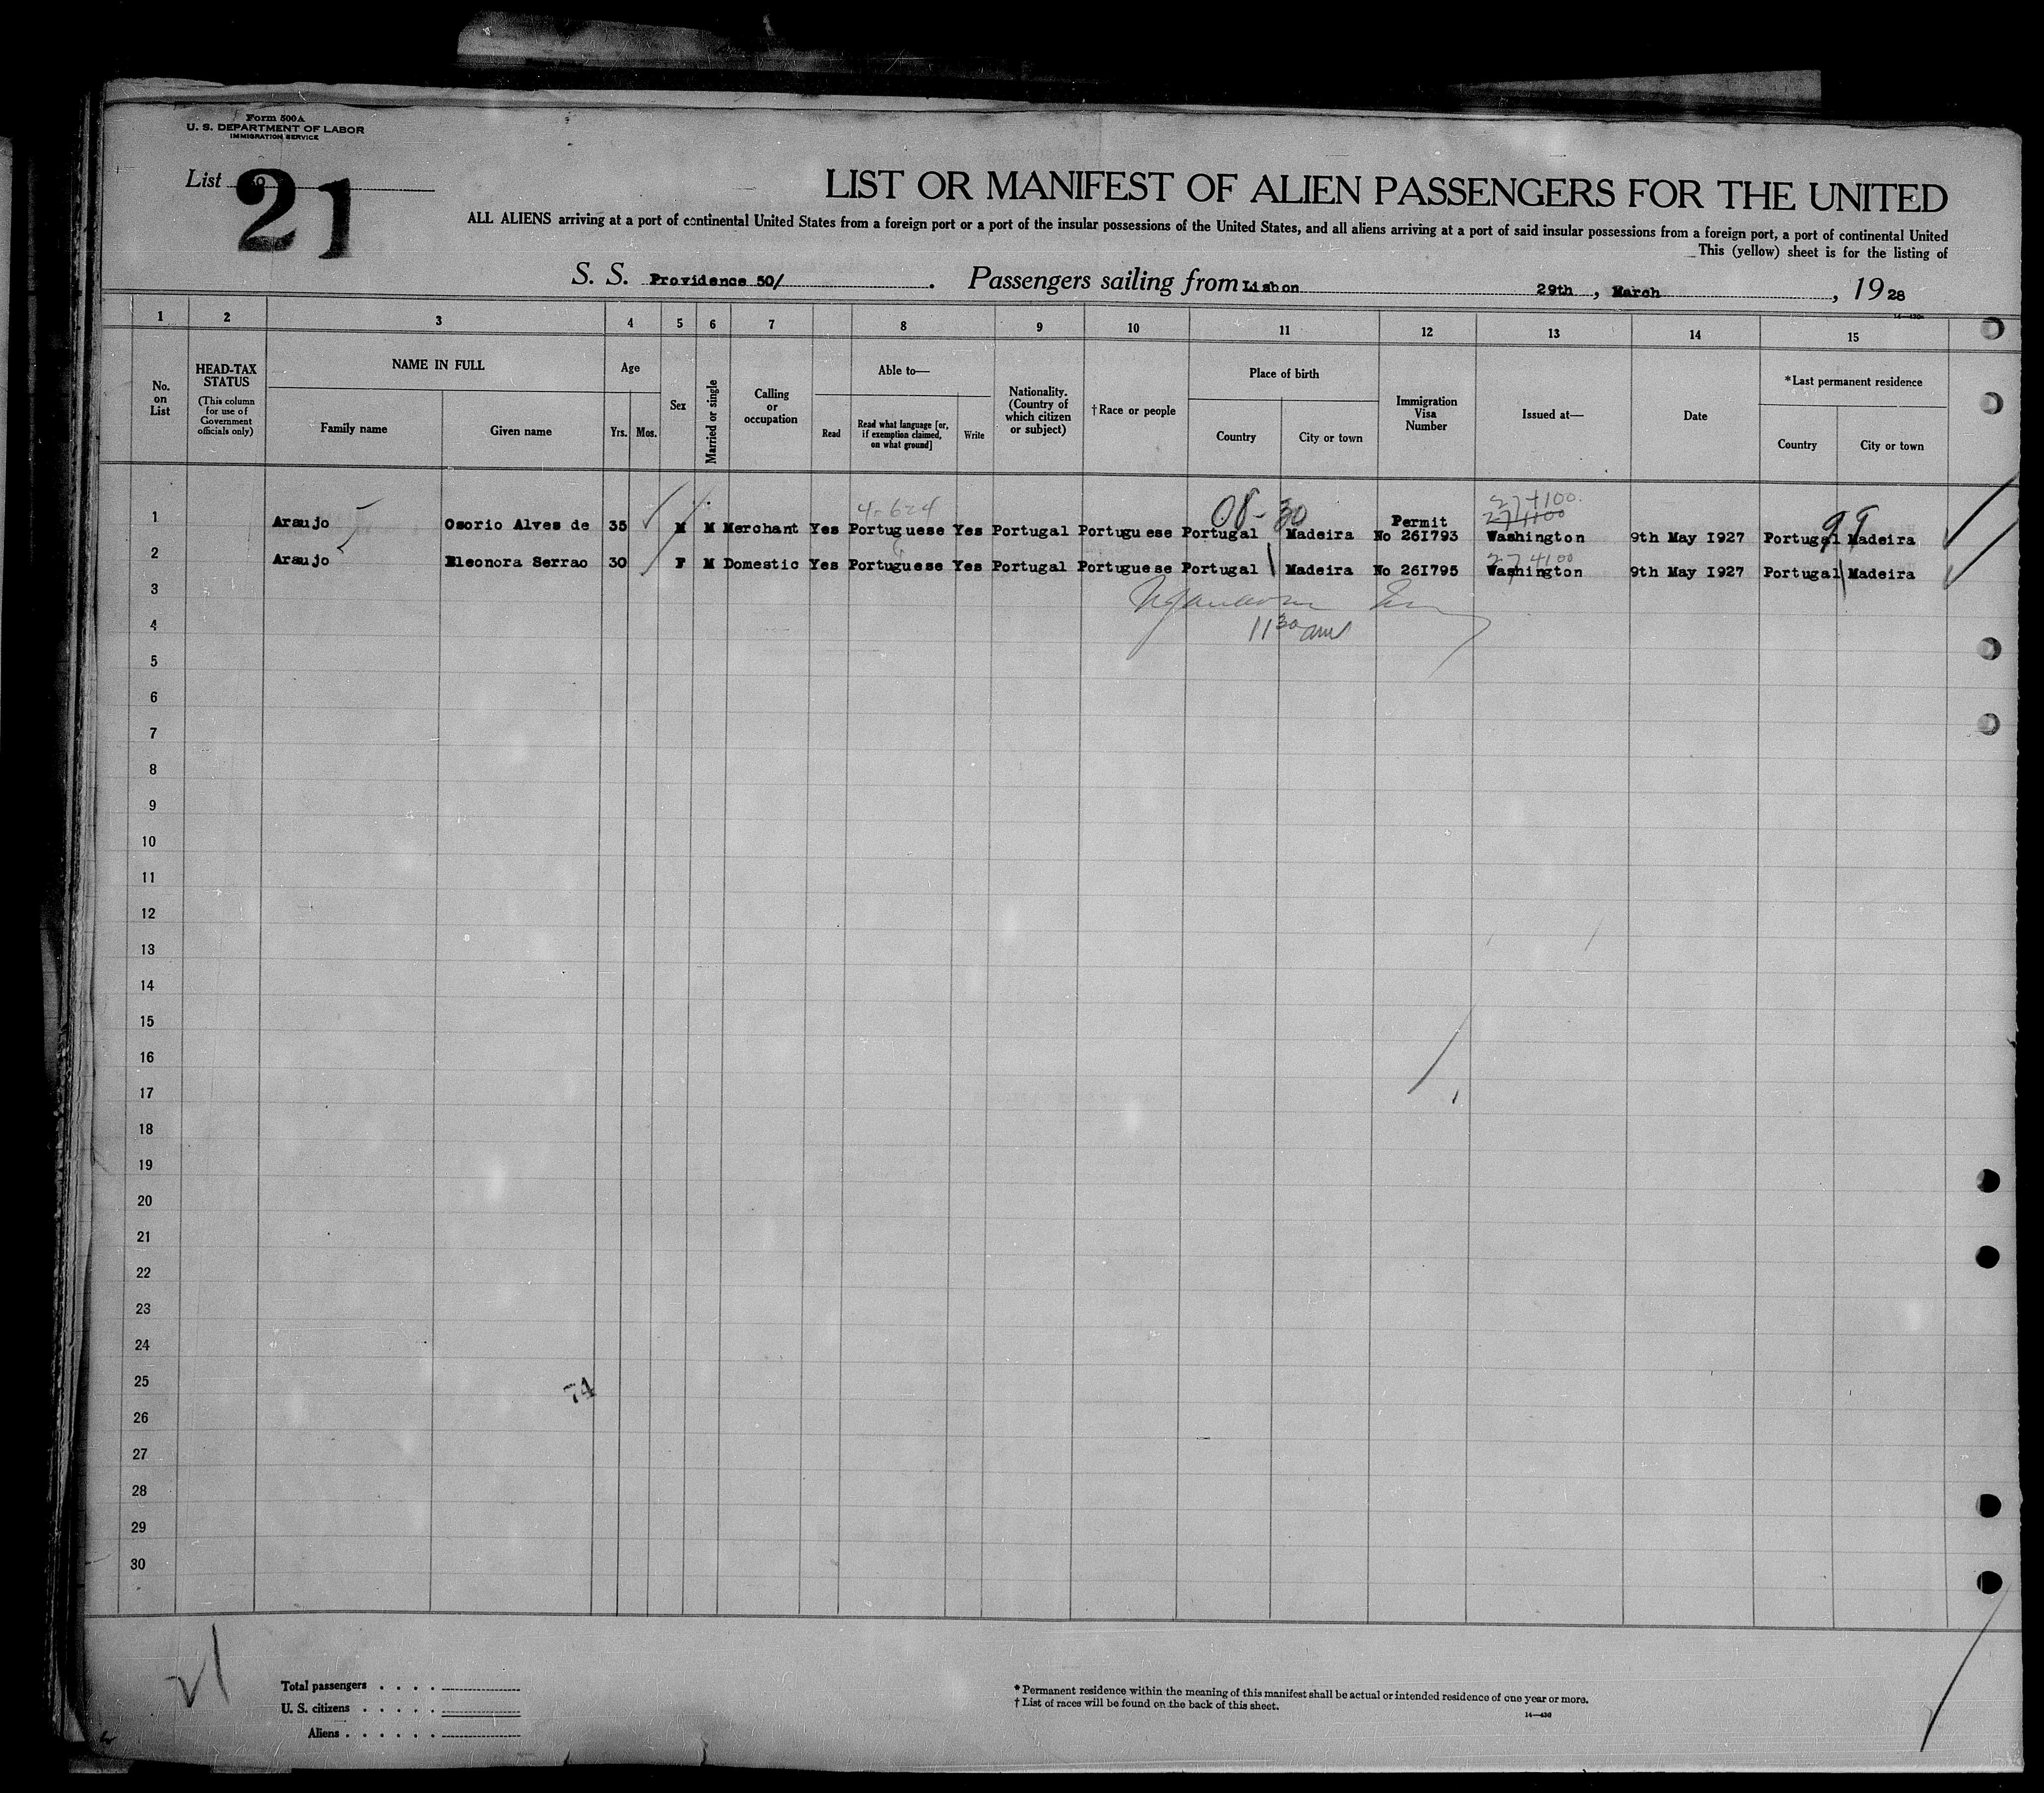 Form 500A
U. S. DEPARTMENT OF LABOR
IMMIGRATION SERVICE
List
21
LIST OR MANIFEST OF ALIEN PASSENGERS FOR THE UNITED
ALL ALIENS arriving at a port of continental United States from a foreign port or a port of the insular possessions of the United States, and all aliens arriving at a port of said insular possessions from a foreign port, a port of continental United
This (yellow) sheet is for the listing of
S. S. Providence 50/ . Passengers sailing from Lisbon 29th , March , 1928
1 2 3 4 5 6 7 8 9 10 11 12 13 14 15
No. on List
HEAD-TAX STATUS
(This column for use of Government officials only)
NAME IN FULL
Family name Given name
Age
Yrs. Mos.
Sex
Married or single
Calling or occupation
Able to—
Read
Read what language [or, if exemption claimed, on what ground]
Write
Nationality. (Country of which citizen or subject)
†Race or people
Place of birth
Country City or town
Immigration Visa Number
Issued at—
Date
*Last permanent residence
Country City or town
08-30 99
1 Araujo Osorio Alves de 35 M M Merchant Yes Portuguese Yes Portugal Portuguese Portugal Madeira Permit No 261793 Washington 9th May 1927 Portugal Madeira
2 Araujo Eleonora Serrao 30 F M Domestic Yes Portuguese Yes Portugal Portuguese Portugal Madeira No 261795 Washington 9th May 1927 Portugal Madeira
3
11 30 am
4
5
6
7
8
9
10
11
12
13
14
15
16
17
18
19
20
21
22
23
24
25
74
26
27
28
29
30
21
Total passengers . . . .
U. S. citizens . . . . .
Aliens . . . . . .
* Permanent residence within the meaning of this manifest shall be actual or intended residence of one year or more.
† List of races will be found on the back of this sheet.
14—430